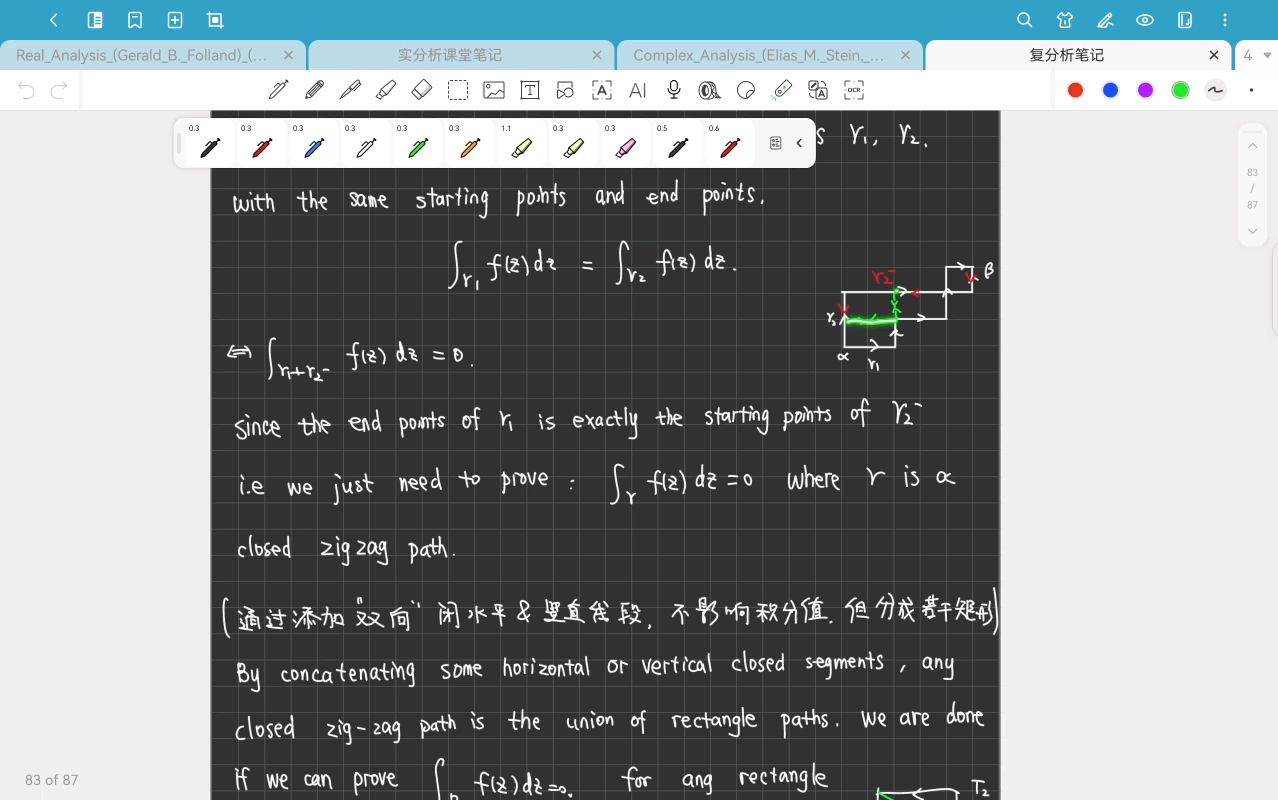 Real_Analysis_(Gerald_B._Folland)_(...
实分析课堂笔记
Complex_Analysis_(Elias_M._Stein,_...
复分析笔记
4
T A AI OCR
0.3 0.3 0.3 0.3 0.3 0.3 1.1 0.3 0.3 0.5 0.6
s r₁, r₂.
with the same starting points and end points.
∫r₁ f(z) dz = ∫r₂ f(z) dz.
r₂⁻
β
r₂
α
r₁
⇔ ∫r₁+r₂⁻ f(z) dz = 0.
since the end points of r₁ is exactly the starting points of r₂⁻
i.e we just need to prove : ∫r f(z) dz = 0 where r is a
closed zigzag path.
(通过添加"双向"闭水平&竖直线段, 不影响积分值. 但分成若干矩形)
By concatenating some horizontal or vertical closed segments, any
closed zig-zag path is the union of rectangle paths. We are done
if we can prove ∫ f(z) dz = 0. for any rectangle
T₂
83
/
87
83 of 87